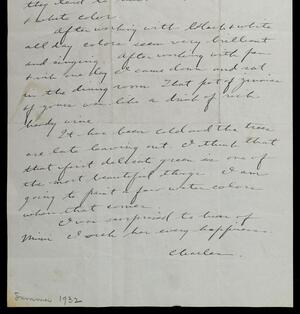 they tend to
+ white color.
After working with black + white
all day colors seem very brilliant
and singing. After working with pen
+ ink one day I came down and sat
in the dining room. That pot of
of yours was like a drink of rich
heady wine.
It has been cold and the trees
are late leaving out. I think that
that first delicate green is one of
the most beautiful things. I am
going to paint a few water colors
when that comes.
I was surprised to hear of
Mimi I wish her every happiness.
Charles.
Summer 1932